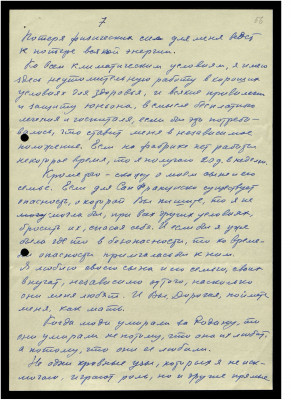 7
Потеря физических сил для меня ведёт
к потере всякой энергии.
Ко всем климатическим условиям, я имею
здесь неутомительную работу в хороших
условиях для здоровья, и всякие привилегии
и защиту юниона, в смысле бесплатного
лечения и госпиталя, если бы это потребо-
валось, что ставит меня в независимое
положение. Если на фабрике нет работы
некоторое время, то я получаю
Кроме того — скажу о моём сыне и его
семье. Если для Сан Франциско существует
опасность, о которой Вы пишите, то я не
могу могла бы, при всех других условиях,
бросить их, спасая себя. И если бы я уже
была где то в безопасности, то ко време-
ни опасности примчалась бы к ним.
Я люблю своего сына и его семью, своих
внучат, независимо от того, насколько
они меня любят. И Вы, Дорогая, поймёте
меня, как мать.
Когда люди умирали за Родину, то
они умирали не потому, что она их любит,
а потому, что они её любили.
Не одни кровные узы, которых я не иск-
лючаю, играют роль, но и другие прямые